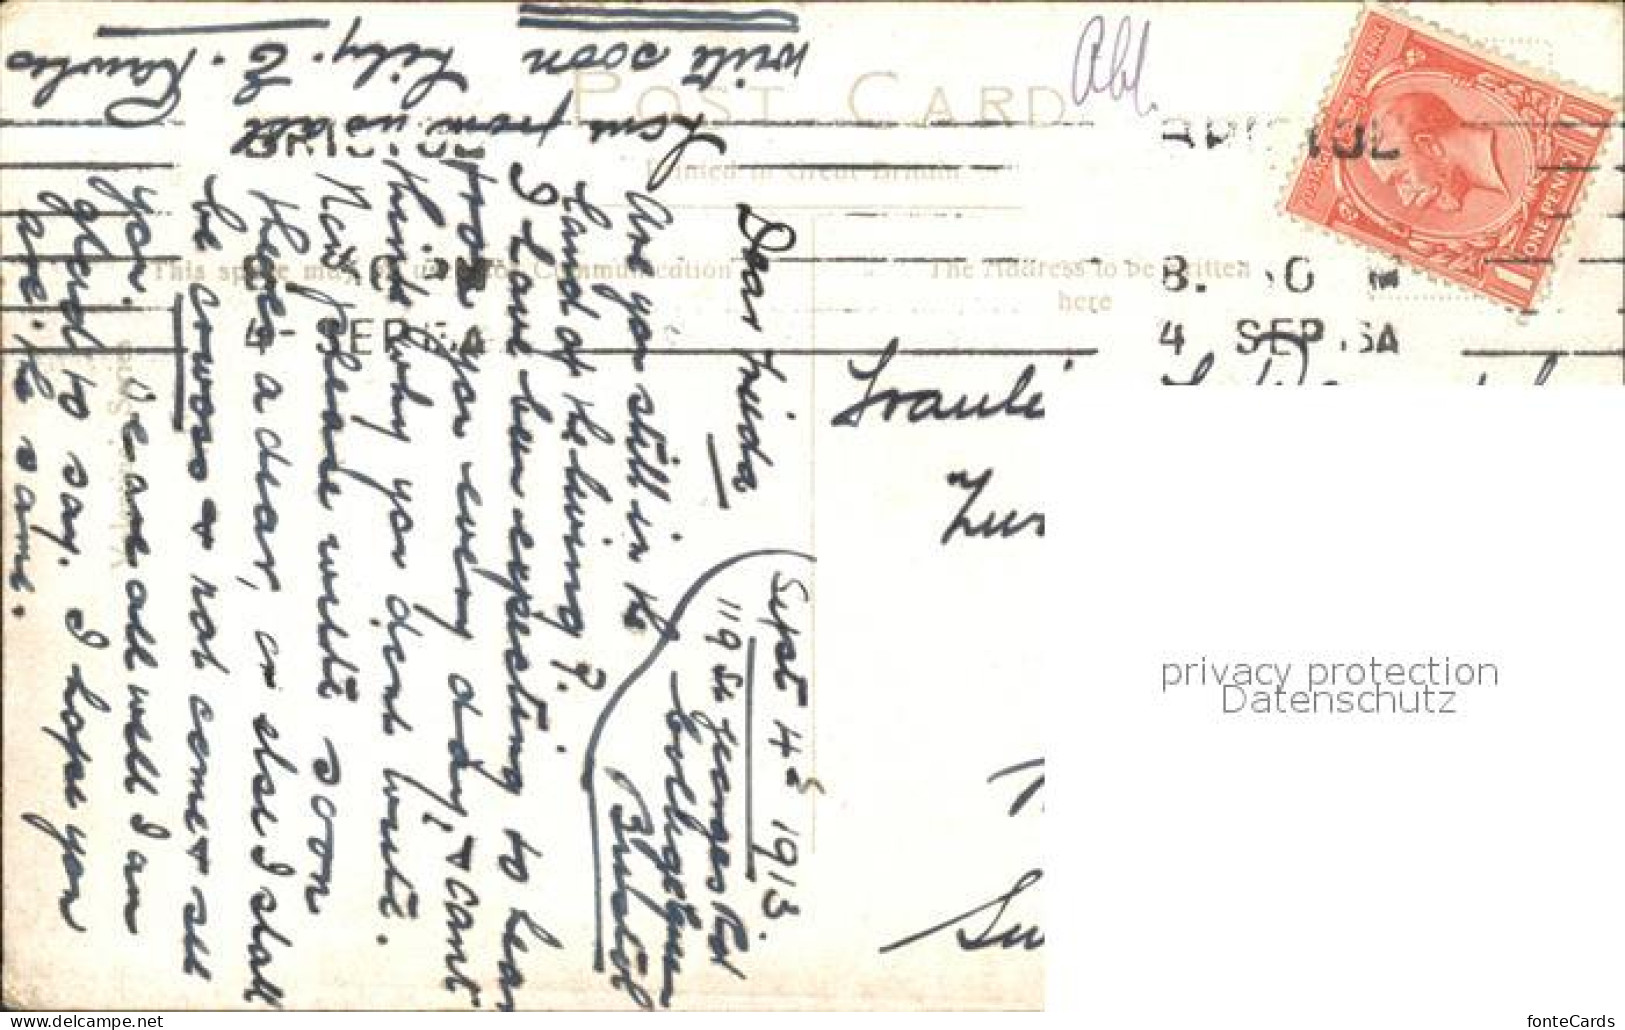 POST CARD
Printed in Great Britain
This space may be used for Communication
The Address to be written
here
Abl.
BRISTOL
8. 0
4 SEP 13A
BRISTOL
4 SEP
POSTAGE
REVENUE
ONE PENNY
Sept 4th 1913.
119 St Georges Rd
Bristol
Dear Frieda
Are you still in the
Land of the living?.
I have been expecting to hear
from you every day, & cant
think why you dont write.
Now please write soon
there's a dear, or else I shall
be cross & not come & see
you.
We are all well I am
glad to say. I hope you
are the same.
Love from us all
Lily. E.
write soon
Frauli
privacy protection
Datenschutz
fonteCards
www.delcampe.net